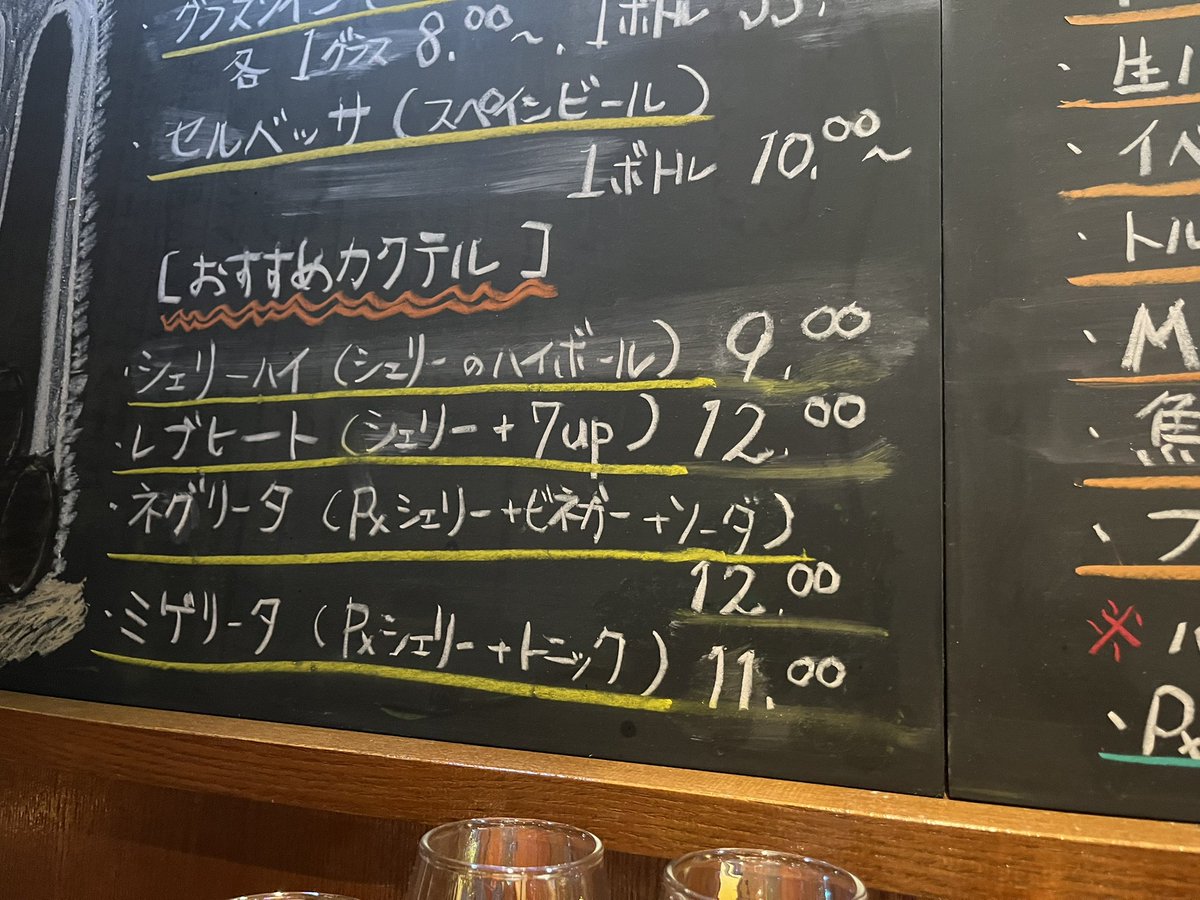 ・グラスワイン(
各 1グラス 8.00〜、1ボトル 55.
・セルベッサ(スペインビール)
1ボトル 10.00〜
[おすすめカクテル]
・シェリーハイ(シェリーのハイボール) 9.00
・レブヒート(シェリー+7up) 12.00
・ネグリータ(Pxシェリー+ビネガー+ソーダ)
12.00
・ミゲリータ(Pxシェリー+トニック) 11.00
・生ハ
・イベ
・トル
・M
・魚
・フ
※ハ
・Px